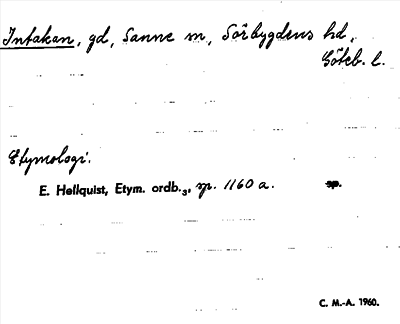 Intakan, gd, Sanne sn, Sörbygdens hd,
Göteb. l.
Etymologi.
E. Hellquist, Etym. ordb.₃, sp. 1160 a.
C. M.-A. 1960.